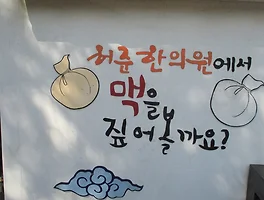 허준한의원에서
맥을
짚어볼까요?